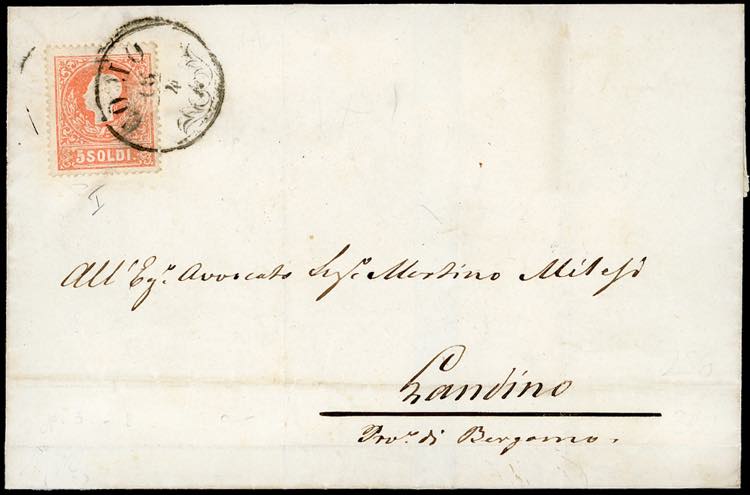 COMO
5 SOLDI
I
All' Egr. Avvocato Sigr. Martino Milesi
Gandino
Prova. di Bergamo.